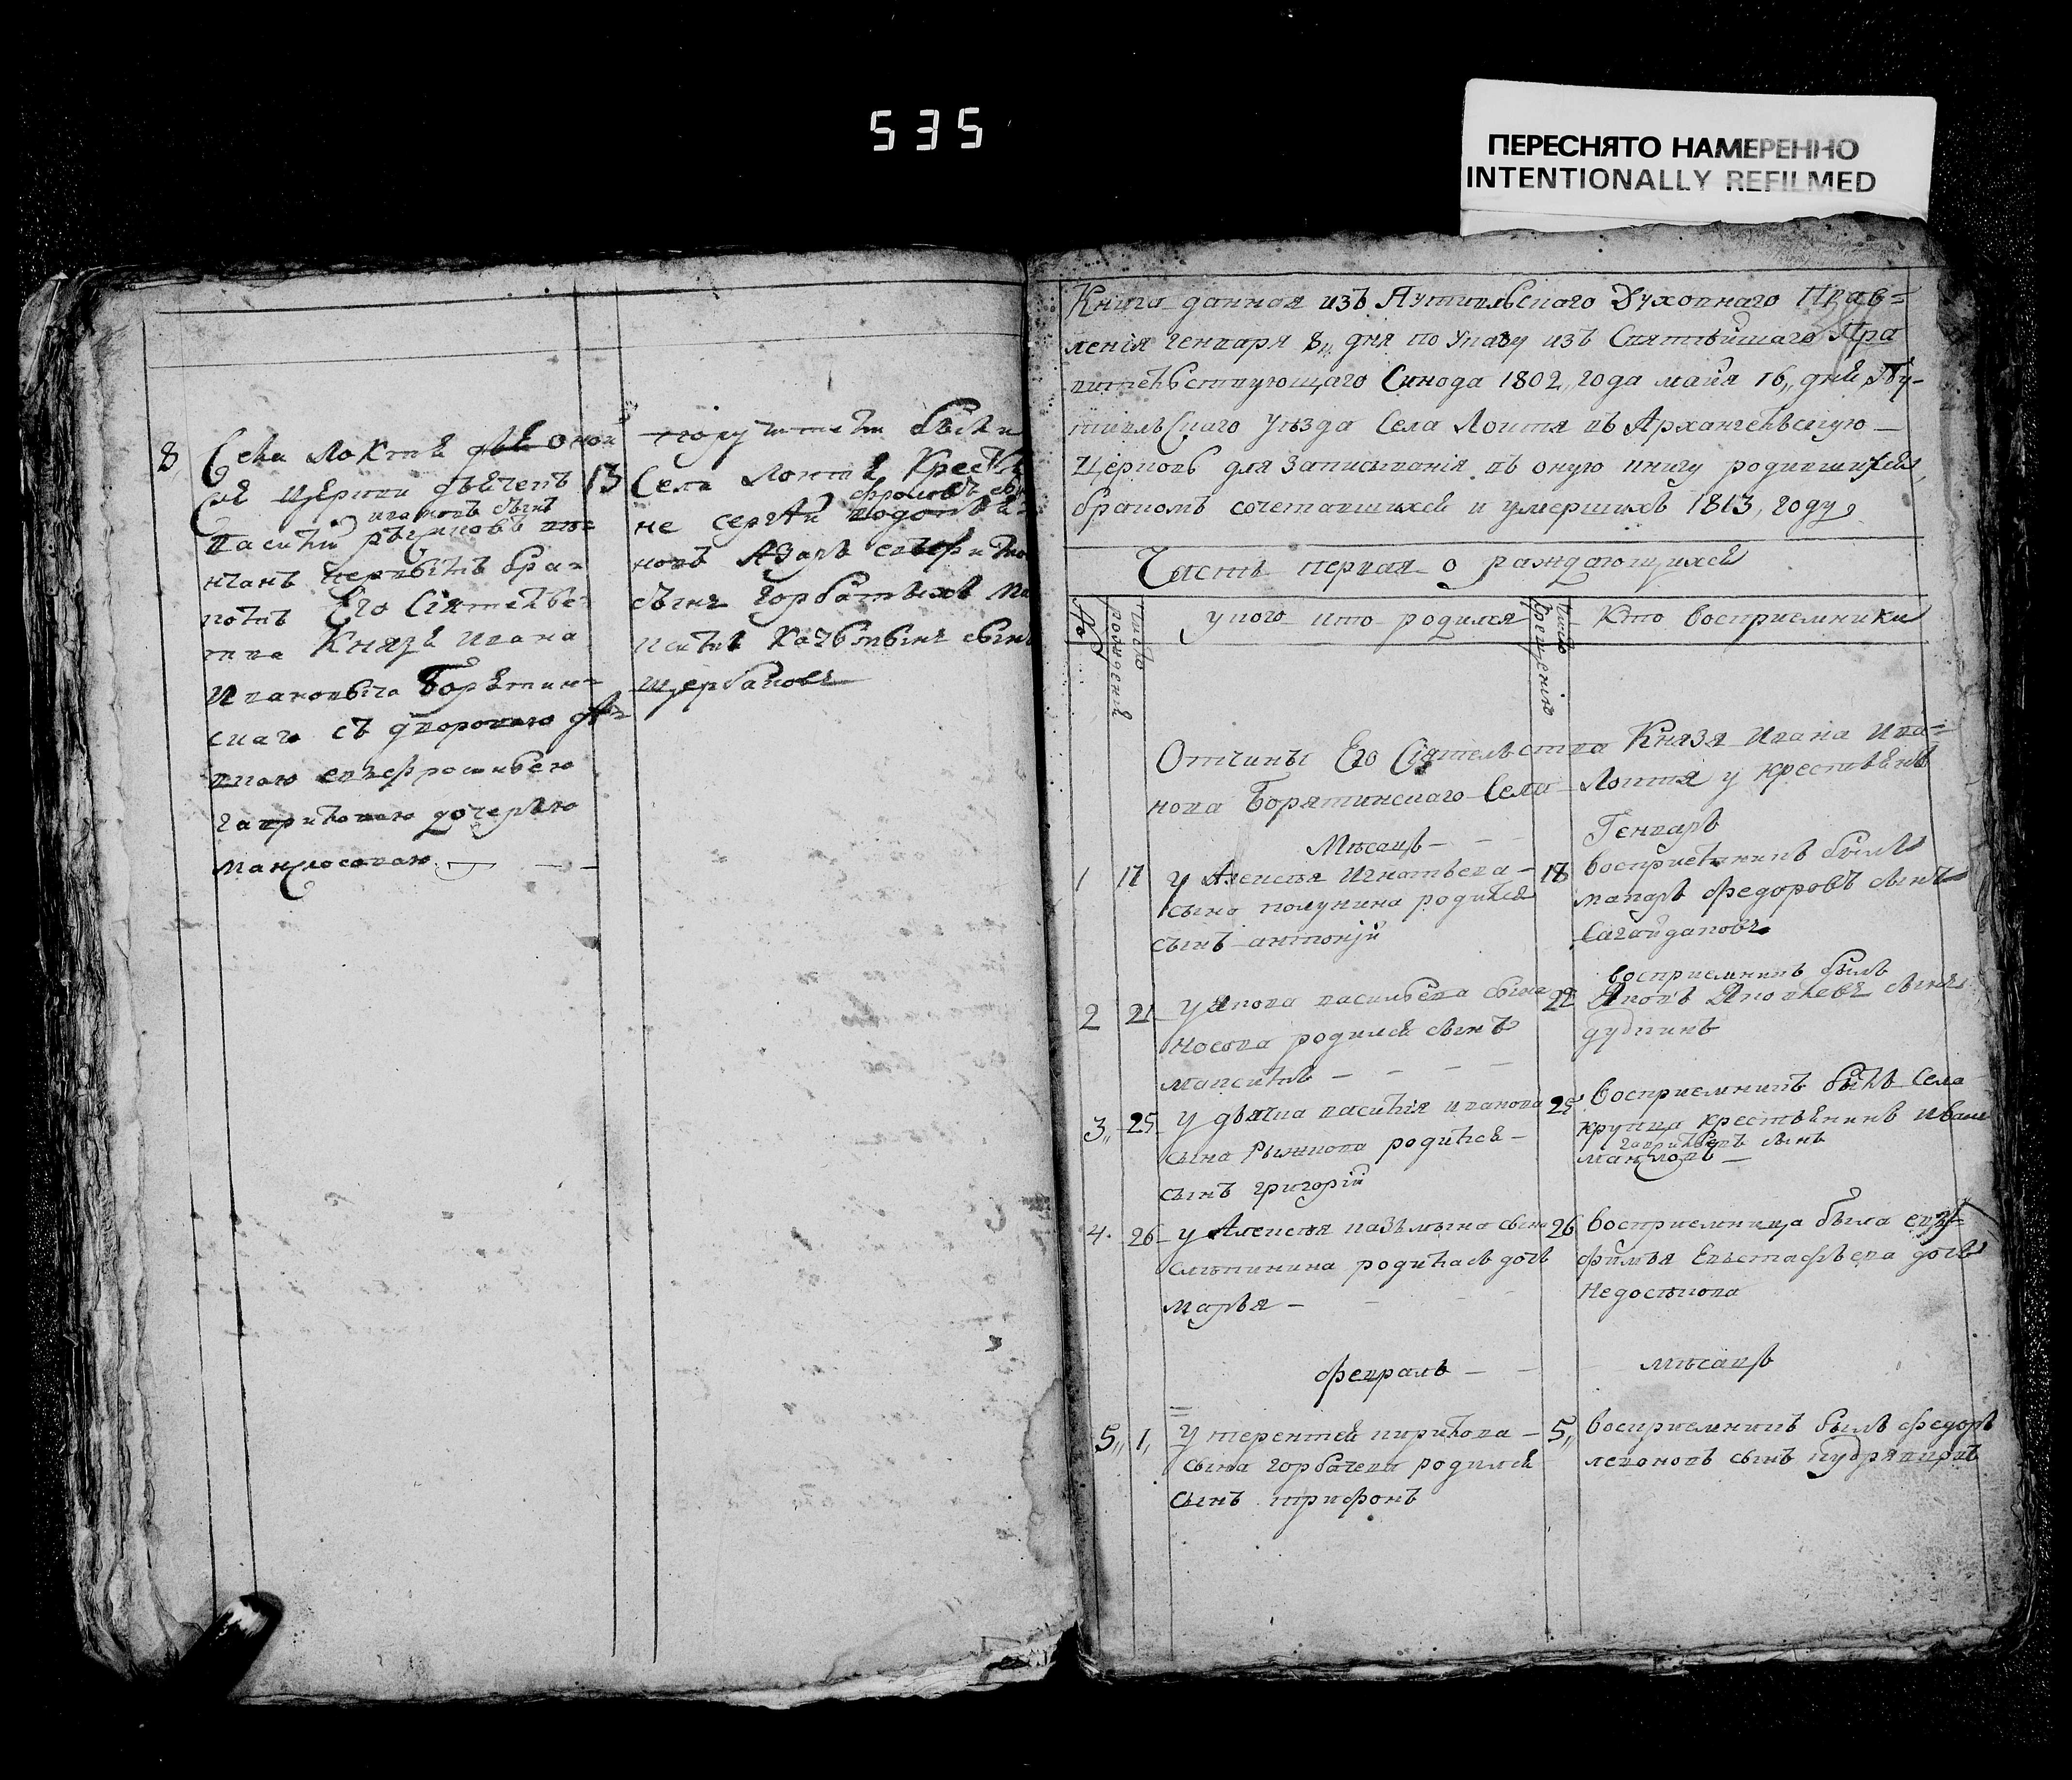 535
ПЕРЕСНЯТО НАМЕРЕННО
INTENTIONALLY REFILMED
8
Села Локтя оной
церкви дьячекъ
ивановъ сынъ
василий
нчанъ первымъ бра-
комъ Его Сіятельс-
тва Князя Ивана
Ивановича Борятин-
скаго съ дворовою дѣ-
вкою евфросиньею
гавриловою дочерью
мануйлова
13
поручители были
Села Локтя Крест
фроловъ
не сергѣй
новъ Азаръ
сынъ горбатыхъ
сынъ
щербаковъ
Книга данная изъ Путивльскаго Духовнаго Прав=
ленія генваря 8,, дня по Указу изъ Святѣйшаго Пра
вительствующаго Синода 1802,, года майя 16,, дня Пу-
тивльскаго Уѣзда Села Локтя въ Архангельскую
Церковь для Записыванія въ оную книгу родившихся,
бракомъ сочетавшихся и умершихъ 1813, году,
Часть первая о раждающихся
№
число рожденія
у кого кто родился
число крещенія
Кто восприемники
Отчины Его Сіятельства Князя Ивана Ива=
нова Борятинскаго Села Локтя у крестьянъ
Мѣсацъ — — Генварь
1 17 у Алексѣя Игнатьева —
сына полунина родился
сынъ антоній
18 восприемникъ былъ
макаръ федоровъ сынъ
Сагайдаковъ
2 21 у Якова васильева сына
Носова родился сынъ
максимъ — — — —
22 восприемникъ былъ
Яковъ Яковлевъ сынъ
дудкинъ
3,, 25 у дьячка василія иванова
сына Рыжкова родился —
сынъ григорій
25 восприемникъ былъ Села
крупца крестьянинъ Иванъ
гавриловъ сынъ
мануловъ —
4. 26 у Алексѣя козьмына сына
слѣпинина родилась дочь
марья — — — —
26 восприемница была евъ=
фимья Евъстафьева дочь
Недосѣкова
февраль — — мѣсацъ
5,, 1,, у терентея кирилова —
сына горбачева родился
сынъ трифонъ
5,, восприемникъ былъ федоръ
леоновъ сынъ кудрявцовъ